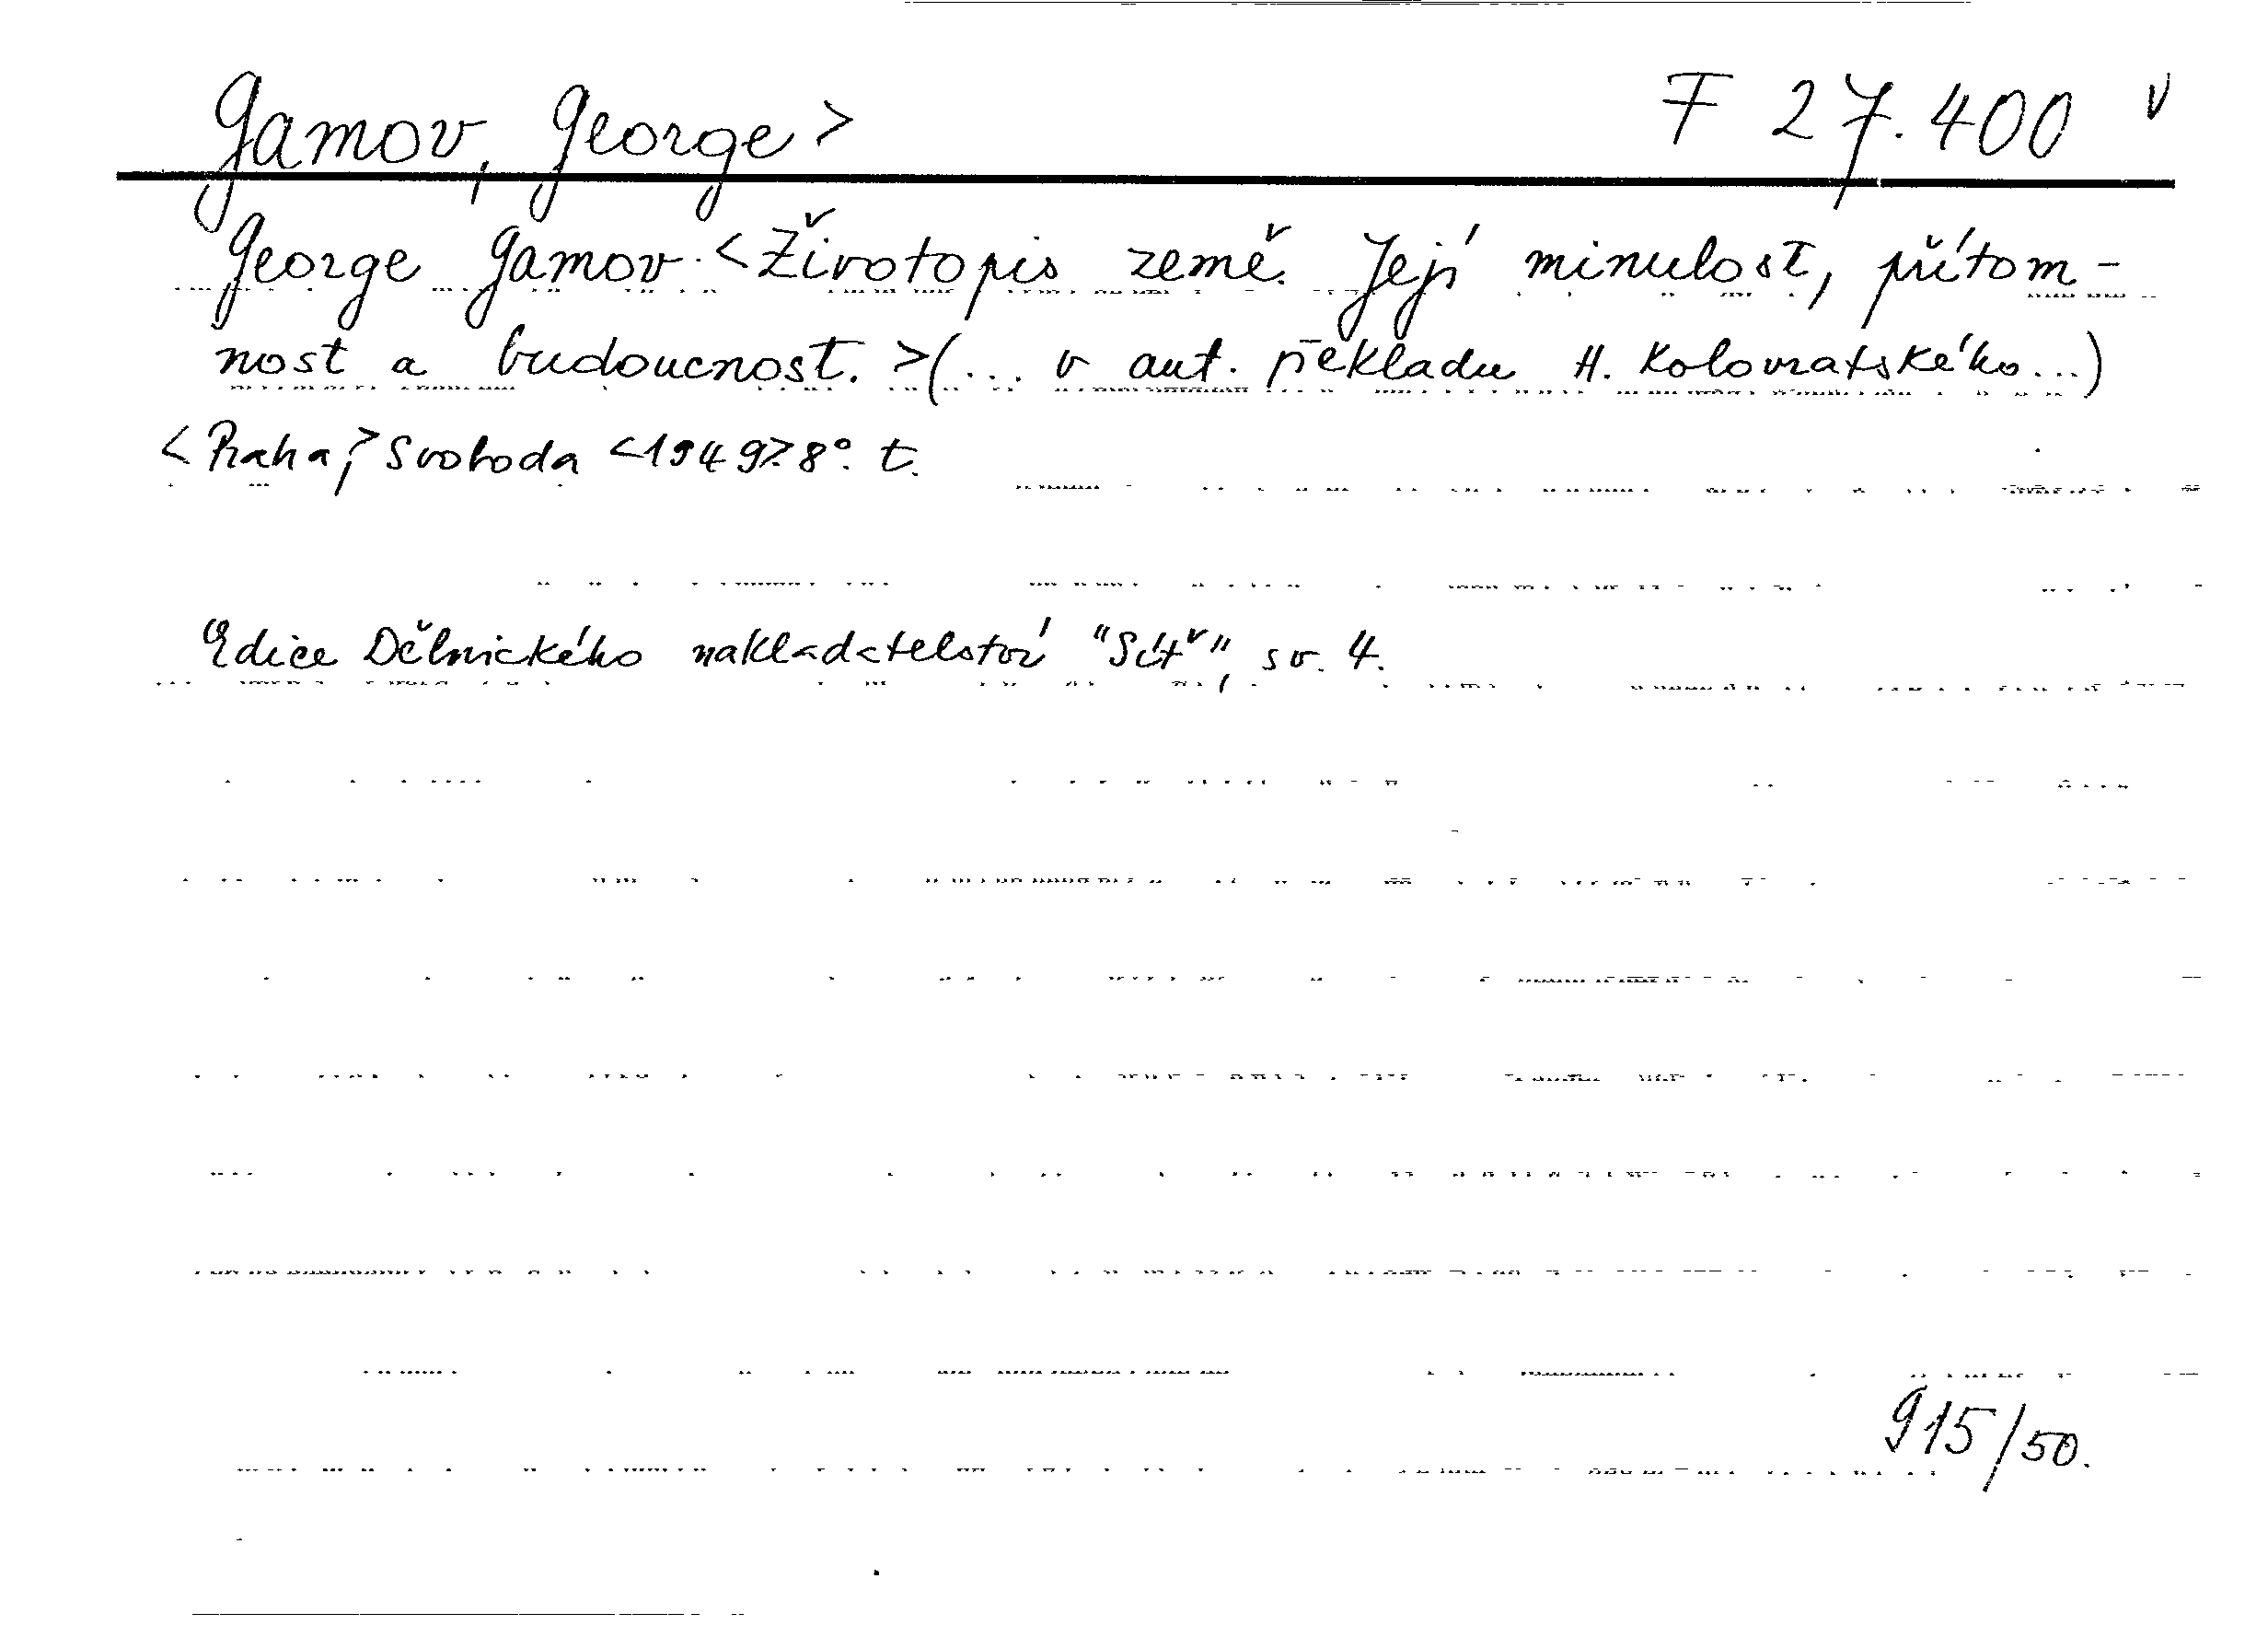 Gamov, George> F 27.400 v
George Gamov.<Životopis země. Její minulost, přítom-
nost a budoucnost.>(... v aut. překladu H. Kolovratského...)
<Praha,> Svoboda <1949>. 8°. t.
Edice Dělnického nakladatelství "Síť", sv. 4.
915/50.